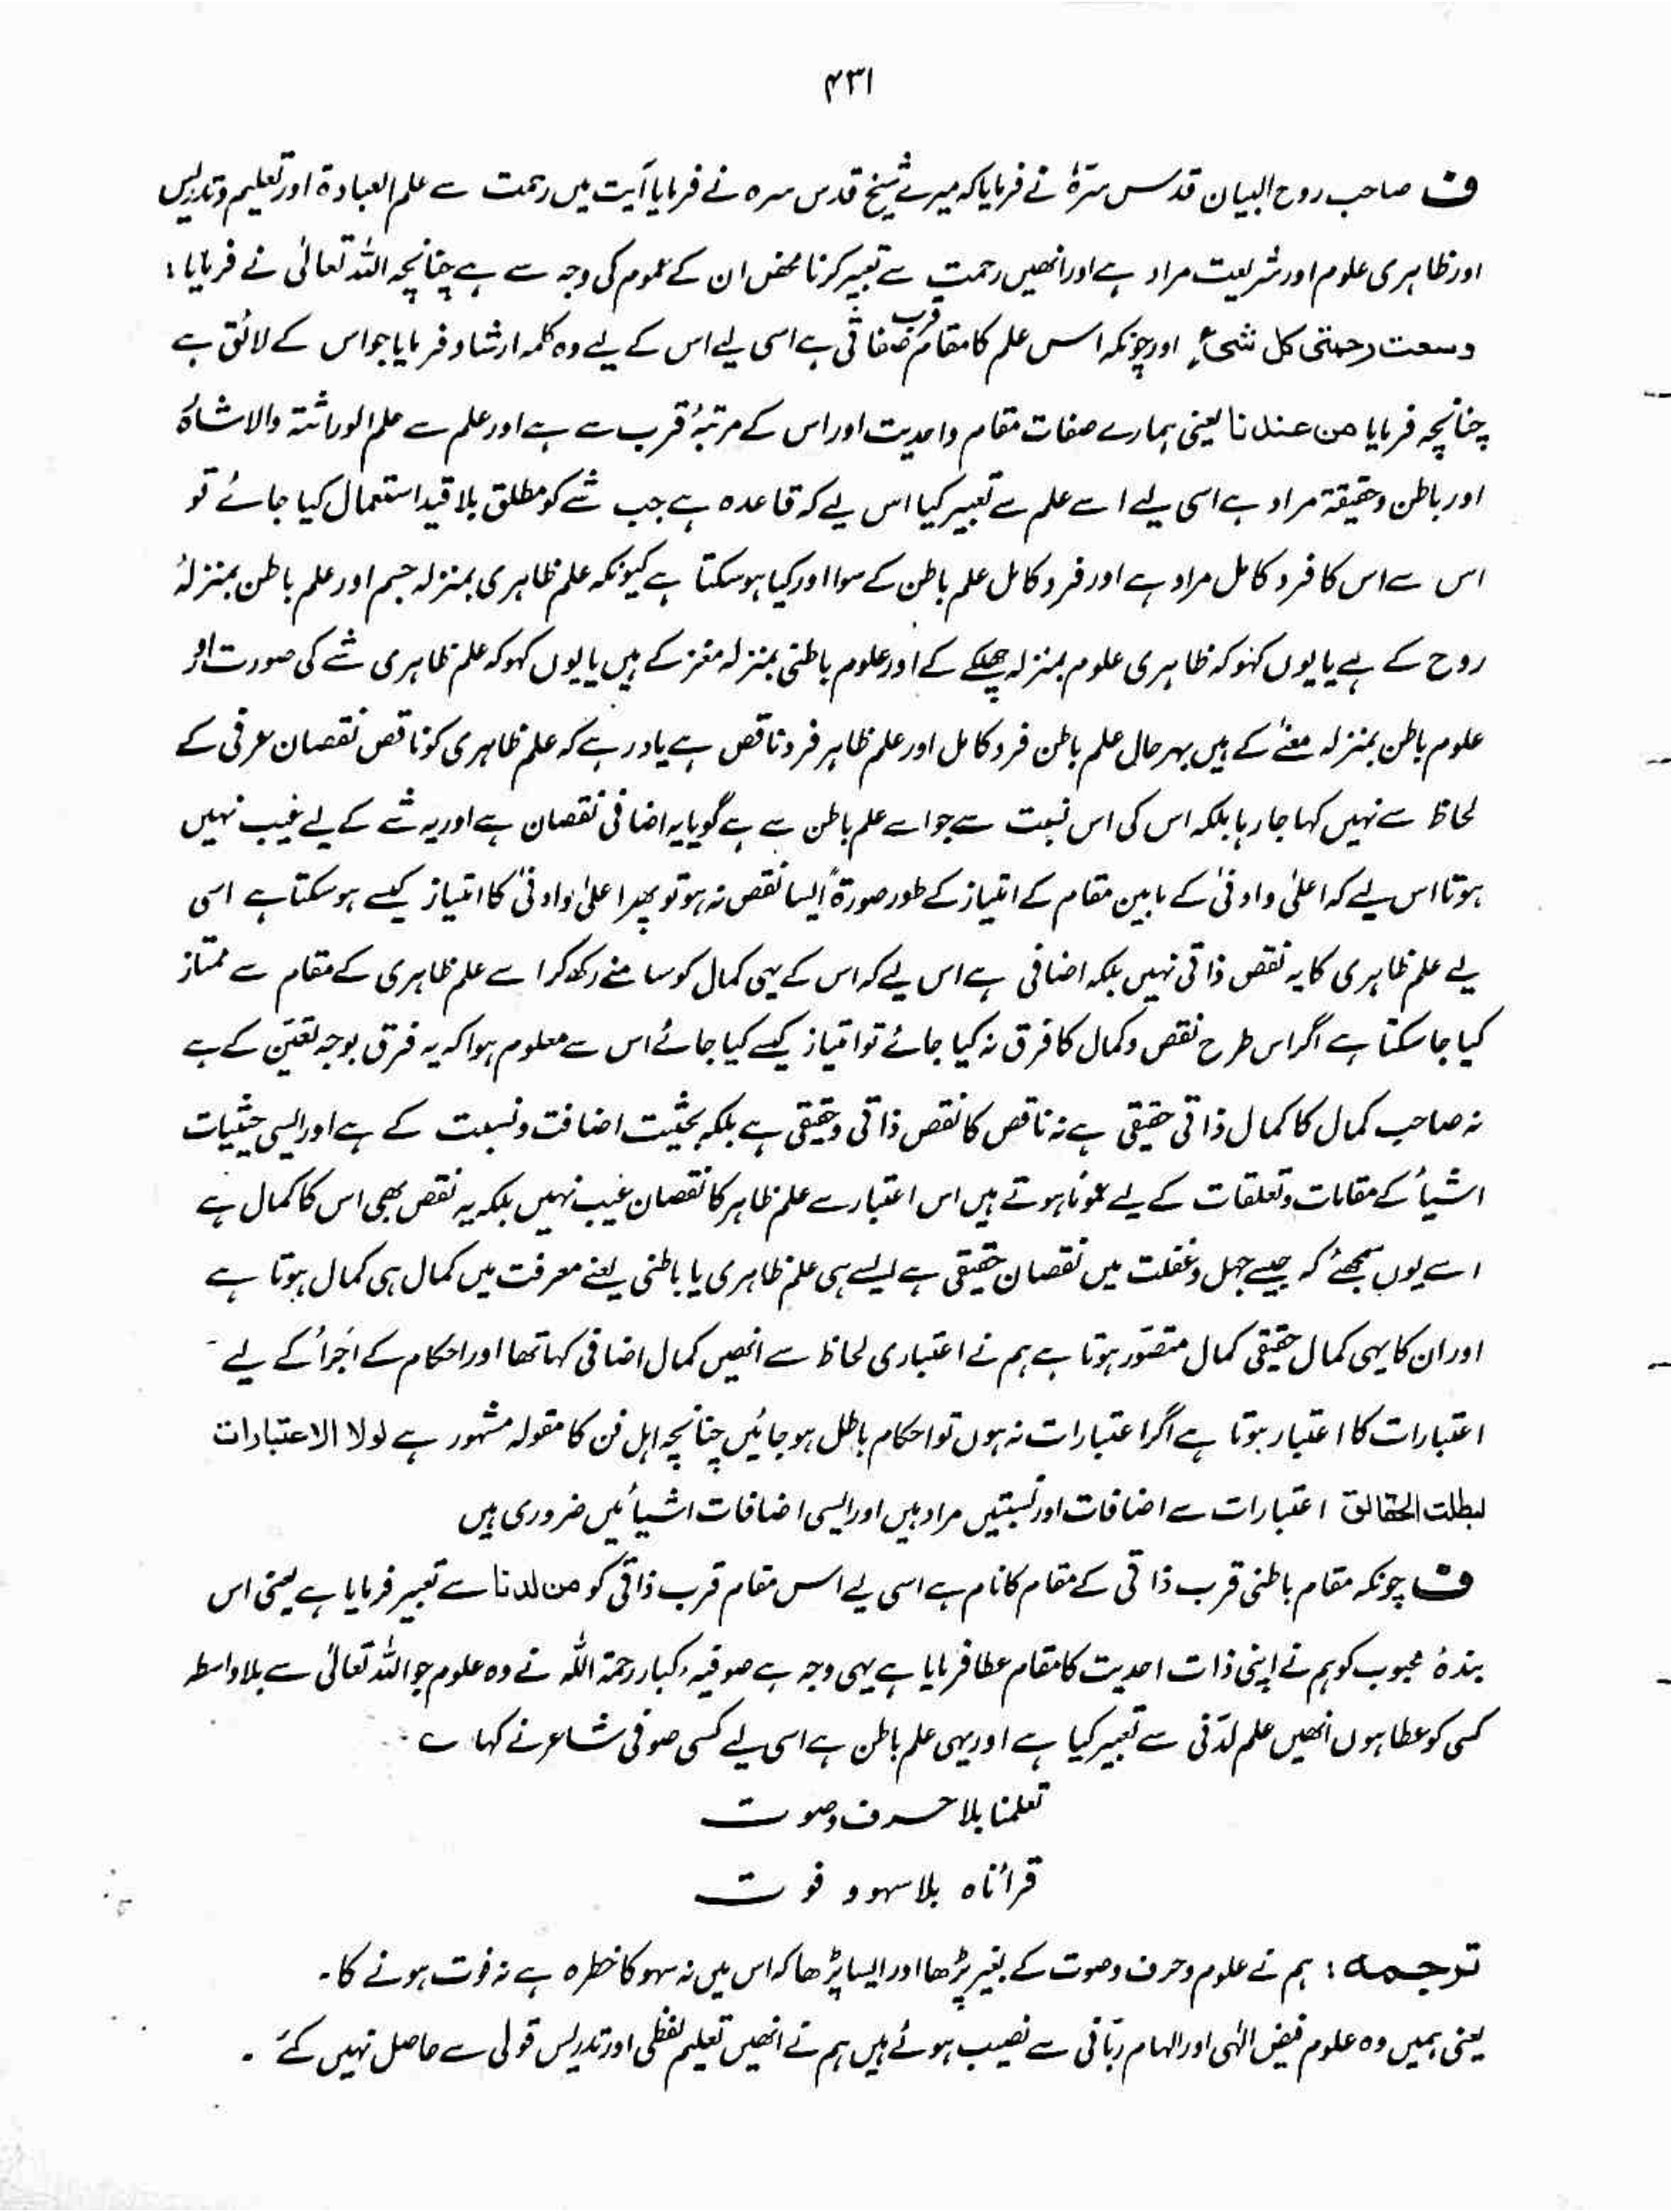 ۴۳۱
ف صاحب روح البیان قدس سرہٗ نے فرمایا کہ میرے شیخ قدس سرہ نے فرمایا آیت میں رحمت سے علم العبادۃ اور تعلیم و تدریس
اور ظاہری علوم اور شریعت مراد ہے اور انھیں رحمت سے تعبیر کرنا محض ان کے عموم کی وجہ سے ہے چنانچہ اللہ تعالٰی نے فرمایا :
وسعت رحمتی کل شیءٍ اور چونکہ اس علم کا مقام قرب صفاتی ہے اسی لیے اس کے لیے وہ کلمہ ارشاد فرمایا جو اس کے لائق ہے
چنانچہ فرمایا من عندنا یعنی ہمارے صفات مقام واحدیت اور اس کے مرتبۂ قرب سے ہے اور علم سے علم الوراثتۃ والاشارۃ
اور باطن و حقیقۃ مراد ہے اسی لیے اسے علم سے تعبیر کیا اس لیے کہ قاعدہ ہے جب شے کو مطلق بلا قید استعمال کیا جائے تو
اس سے اس کا فرد کامل مراد ہے اور فرد کامل علم باطن کے سوا اور کیا ہو سکتا ہے کیونکہ علم ظاہری بمنزلہ جسم اور علم باطن بمنزلۂ
روح کے ہے یا یوں کہو کہ ظاہری علوم بمنزلہ چھلکے کے اور علوم باطنی بمنزلہ مغز کے ہیں یا یوں کہو کہ علم ظاہری شے کی صورت اور
علوم باطن بمنزلہ معنےٰ کے ہیں بہرحال علم باطن فرد کامل اور علم ظاہر فرد ناقص ہے یاد رہے کہ علم ظاہری کو ناقص نقصان عرفی کے
لحاظ سے نہیں کہا جا رہا بلکہ اس کی اس نسبت سے جو اسے علم باطن سے ہے گویا یہ اضافی نقصان ہے اور یہ شے کے لیے عیب نہیں
ہوتا اس لیے کہ اعلیٰ و ادنیٰ کے مابین مقام کے امتیاز کے طور صورۃً ایسا نقص نہ ہو تو پھر اعلیٰ و ادنیٰ کا امتیاز کیسے ہو سکتا ہے اسی
لیے علم ظاہری کا یہ نقص ذاتی نہیں بلکہ اضافی ہے اس لیے کہ اس کے یہی کمال کو سامنے رکھ کر اسے علم ظاہری کے مقام سے ممتاز
کیا جا سکتا ہے اگر اس طرح نقص و کمال کا فرق نہ کیا جائے تو امتیاز کیسے کیا جائے اس سے معلوم ہوا کہ یہ فرق بوجہ تعیّن کے ہے
نہ صاحب کمال کا کمال ذاتی حقیقی ہے نہ ناقص کا نقص ذاتی و حقیقی ہے بلکہ بحیثیت اضافت و نسبت کے ہے اور ایسی حیثیات
اشیأ کے مقامات و تعلقات کے لیے عموماً ہوتے ہیں اس اعتبار سے علم ظاہر کا نقصان عیب نہیں بلکہ یہ نقص بھی اس کا کمال ہے
اسے یوں سمجھئے کہ جیسے جہل و غفلت میں نقصان حقیقی ہے ایسے ہی علم ظاہری یا باطنی یعنے معرفت میں کمال ہی کمال ہوتا ہے
اور ان کا یہی کمال حقیقی کمال متصوّر ہوتا ہے ہم نے اعتباری لحاظ سے انھیں کمال اضافی کہا تھا اور احکام کے اجرأ کے لیے
اعتبارات کا اعتبار ہوتا ہے اگر اعتبارات نہ ہوں تو احکام باطل ہو جائیں چنانچہ اہل فن کا مقولہ مشہور ہے لولا الاعتبارات
لبطلت الحقائق اعتبارات سے اضافات اور نسبتیں مراد ہیں اور ایسی اضافات اشیأ میں ضروری ہیں
ف چونکہ مقام باطنی قرب ذاتی کے مقام کا نام ہے اسی لیے اس مقام قرب ذاتی کو من لدنا سے تعبیر فرمایا ہے یعنی اس
بندۂ محبوب کو ہم نے اپنی ذات احدیت کا مقام عطا فرمایا ہے یہی وجہ ہے صوفیہ کبار رحمۃ اللہ نے وہ علوم جو اللہ تعالٰی سے بلاواسطہ
کسی کو عطا ہوں انھیں علم لدنی سے تعبیر کیا ہے اور یہی علم باطن ہے اسی لیے کسی صوفی شاعر نے کہا ؎
تعلمنا بلا حرف وصوت
قرأناہ بلا سہو و فوت
ترجمہ : ہم نے علوم و حرف و صوت کے بغیر پڑھا اور ایسا پڑھا کہ اس میں نہ سہو کا خطرہ ہے نہ فوت ہونے کا۔
یعنی ہمیں وہ علوم فیض الٰہی اور الہام ربّانی سے نصیب ہوئے ہیں ہم نے انھیں تعلیم لفظی اور تدریس قولی سے حاصل نہیں کئے ۔